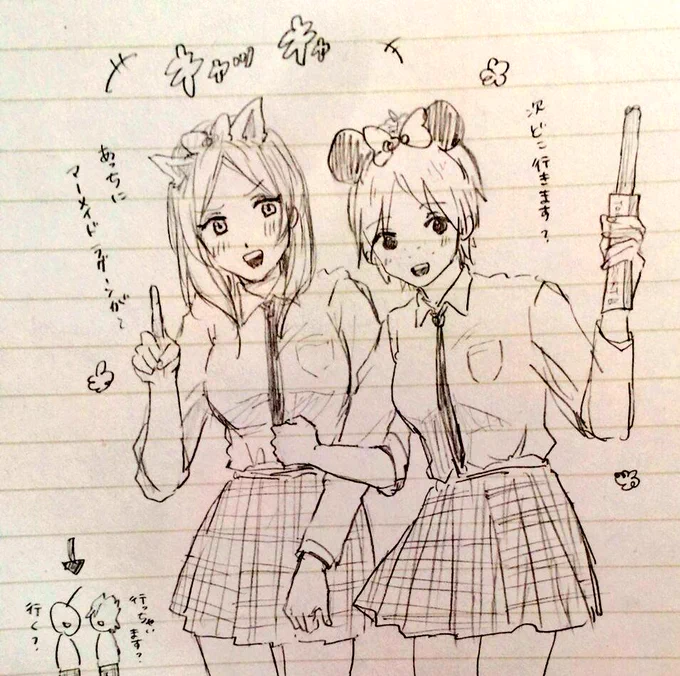 キャッキャ
次どこ行きます?
あっちに
マーメイドラグーンが〜
行っちゃい
ます?
行く?